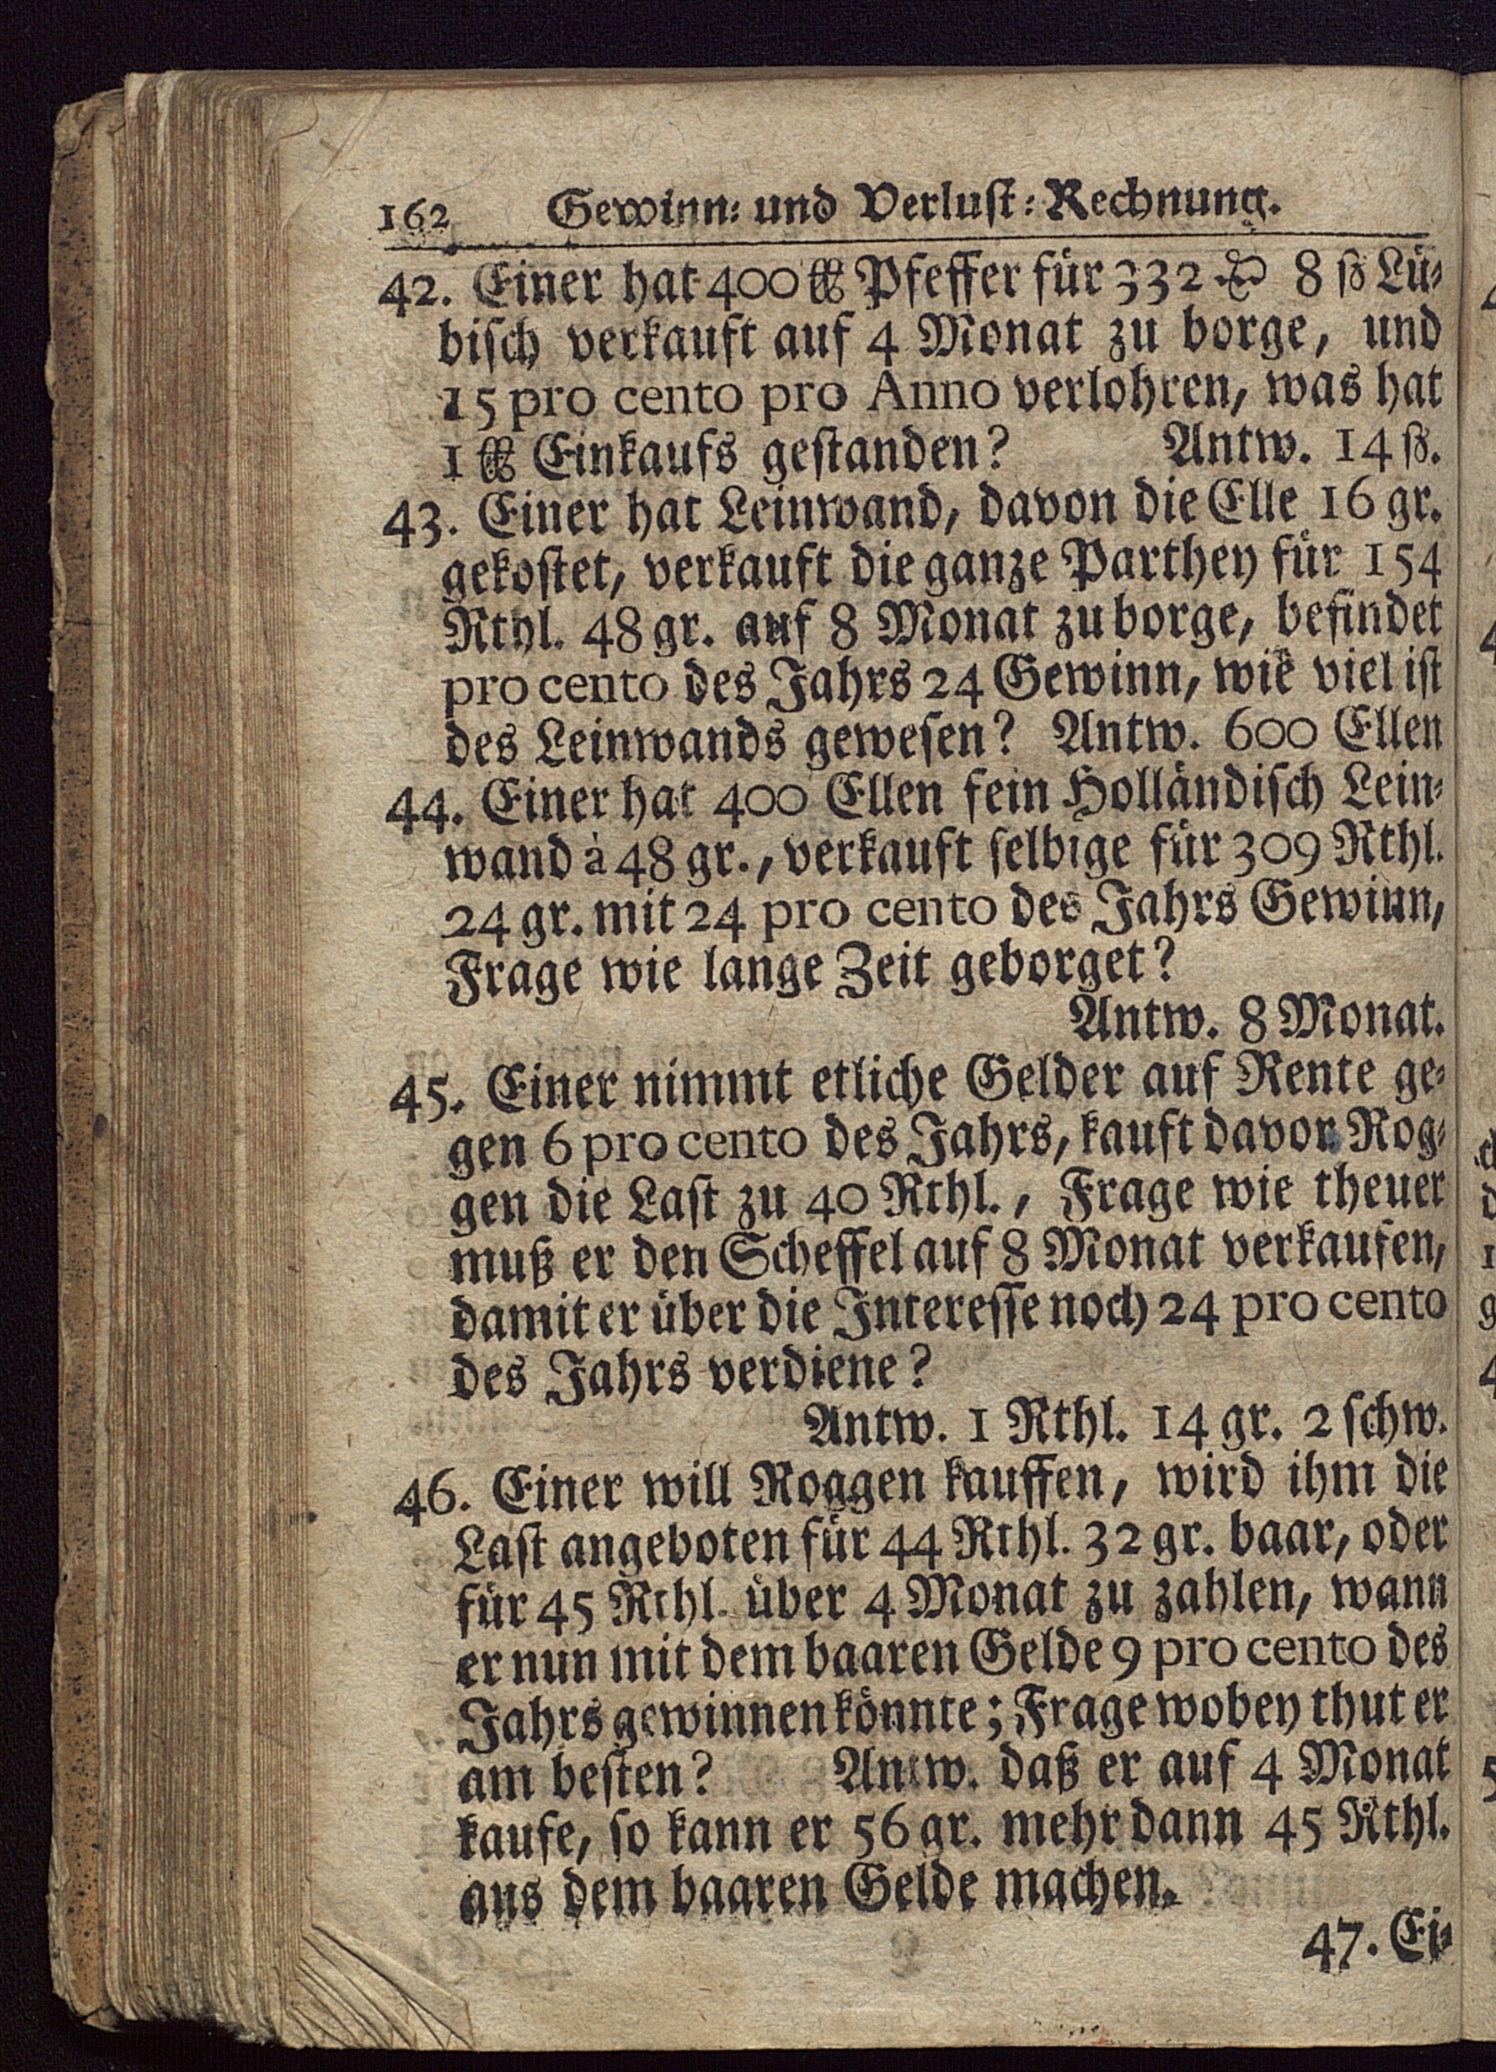 162 Gewinn- und Verlust-Rechnung.
42. Einer hat 400 ℔ Pfeffer für 332 ß Lü-
bisch verkauft auf 4 Monat zu borge, und
15 pro cento pro Anno verlohren, was hat
1 ℔ Einkaufs gestanden? Antw. 14 ß.
43. Einer hat Leinwand, davon die Elle 16 gr.
gekostet, verkauft die ganze Parthey für 154
Rthl. 48 gr. auf 8 Monat zu borge, befindet
pro cento des Jahrs 24 Gewinn, wie viel ist
des Leinwands gewesen? Antw. 600 Ellen
44. Einer hat 400 Ellen fein Holländisch Lein-
wand à 48 gr., verkauft selbige für 309 Rthl.
24 gr. mit 24 pro cento des Jahrs Gewinn,
Frage wie lange Zeit geborget?
Antw. 8 Monat.
45. Einer nimmt etliche Gelder auf Rente ge-
gen 6 pro cento des Jahrs, kauft davor Rog-
gen die Last zu 40 Rthl., Frage wie theuer
muß er den Scheffel auf 8 Monat verkaufen,
damit er über die Interesse noch 24 pro cento
des Jahrs verdiene?
Antw. 1 Rthl. 14 gr. 2 schw.
46. Einer will Roggen kauffen, wird ihm die
Last angeboten für 44 Rthl. 32 gr. baar, oder
für 45 Rthl. über 4 Monat zu zahlen, wann
er nun mit dem baaren Gelde 9 pro cento des
Jahrs gewinnen könnte; Frage wobey thut er
am besten? Antw. daß er auf 4 Monat
kaufe, so kann er 56 gr. mehr dann 45 Rthl.
aus dem baaren Gelde machen.
47. Ei-